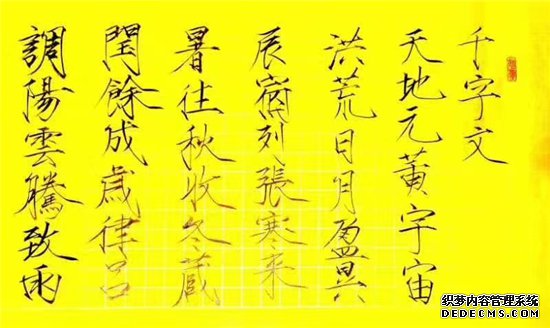 千字文
天地元黃宇宙
洪荒日月盈昃
辰宿列張寒来
暑往秋收冬蔵
閏餘成歲律呂
調陽雲騰致雨
织梦内容管理系统
DEDECMS.COM